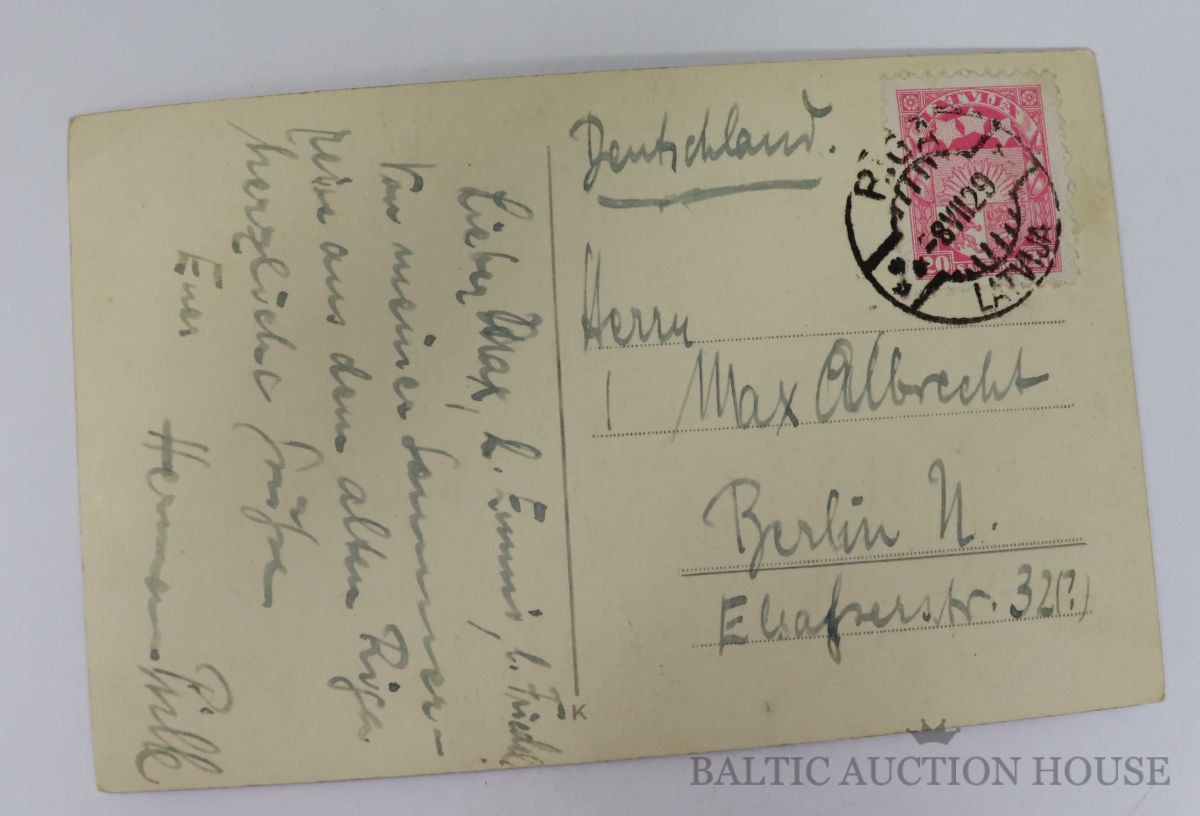 Deutschland.
LATVIJA
20
RĪGA
-8 VIII 29
LATVIJA
Herrn
Max Albrecht
Berlin N.
Elsasserstr. 32(?)
Lieber Max, l. Emmi, l. Friedel
Von meiner Sommer-
reise aus dem alten Riga
herzliche Grüße
Euer Hermann
K
BALTIC AUCTION HOUSE